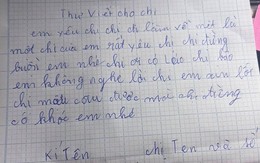 Thư Viết cho chị
em yêu chị chị đi làm về mệt là
một chị của em rất yêu chị chị đừng
buồn em nhé chị ơi có lúc chị bảo
em không nghe lời chị em xin lỗi
chị mãi của được mọi chị đừng
có khóc em nhé
Kí Tên chị Ten và số